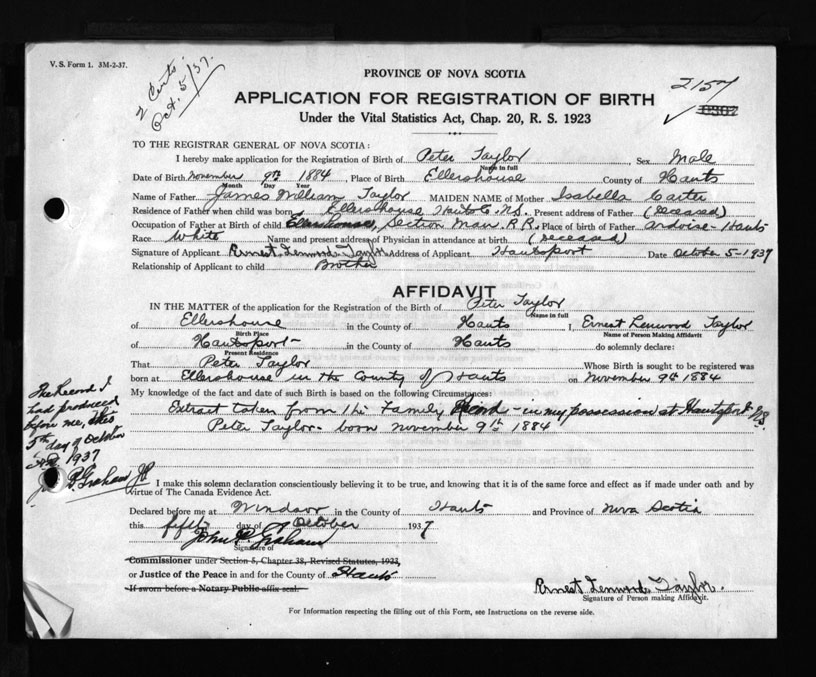 V. S. Form 1. 3M-2-37.
2 Certs
Oct. 5/37.
PROVINCE OF NOVA SCOTIA
2157
APPLICATION FOR REGISTRATION OF BIRTH
Under the Vital Statistics Act, Chap. 20, R. S. 1923
TO THE REGISTRAR GENERAL OF NOVA SCOTIA:
I hereby make application for the Registration of Birth of Peter Taylor, Sex Male
Name in full
Date of Birth November 9th 1884, Place of Birth Ellershouse County of Hants
Month Day Year
Name of Father James William Taylor MAIDEN NAME of Mother Isabella Carter
Residence of Father when child was born Ellershouse Hants Co N.S. Present address of Father (deceased)
Occupation of Father at Birth of child Section Man. R.R. Place of birth of Father Ardoise - Hants
Race White Name and present address of Physician in attendance at birth (deceased)
Signature of Applicant Ernest Lenwood Taylor Address of Applicant Hantsport Date October 5-1937
Relationship of Applicant to child Brother
AFFIDAVIT
IN THE MATTER of the application for the Registration of the Birth of Peter Taylor
Name in full
of Ellershouse in the County of Hants I, Ernest Lenwood Taylor
Birth Place Name of Person Making Affidavit
of Hantsport - in the County of Hants do solemnly declare:
Present Residence
That Peter Taylor Whose Birth is sought to be registered was
born at Ellershouse in the County of Hants on November 9th 1884
My knowledge of the fact and date of such Birth is based on the following Circumstances:
Extract taken from the Family Record - in my possession at Hantsport N.S.
Peter Taylor - born november 9th 1884
The Record I
had produced
before me, this
5th day of October
A.D. 1937
J. P. Graham J.P.
And I make this solemn declaration conscientiously believing it to be true, and knowing that it is of the same force and effect as if made under oath and by
virtue of The Canada Evidence Act.
Declared before me at Windsor in the County of Hants and Province of Nova Scotia
this fifth day of October 1937
John P. Graham
Signature of
Commissioner under Section 5, Chapter 38, Revised Statutes, 1923,
or Justice of the Peace in and for the County of Hants
If sworn before a Notary Public affix seal.
Ernest Lenwood Taylor.
Signature of Person making Affidavit.
For Information respecting the filling out of this Form, see Instructions on the reverse side.